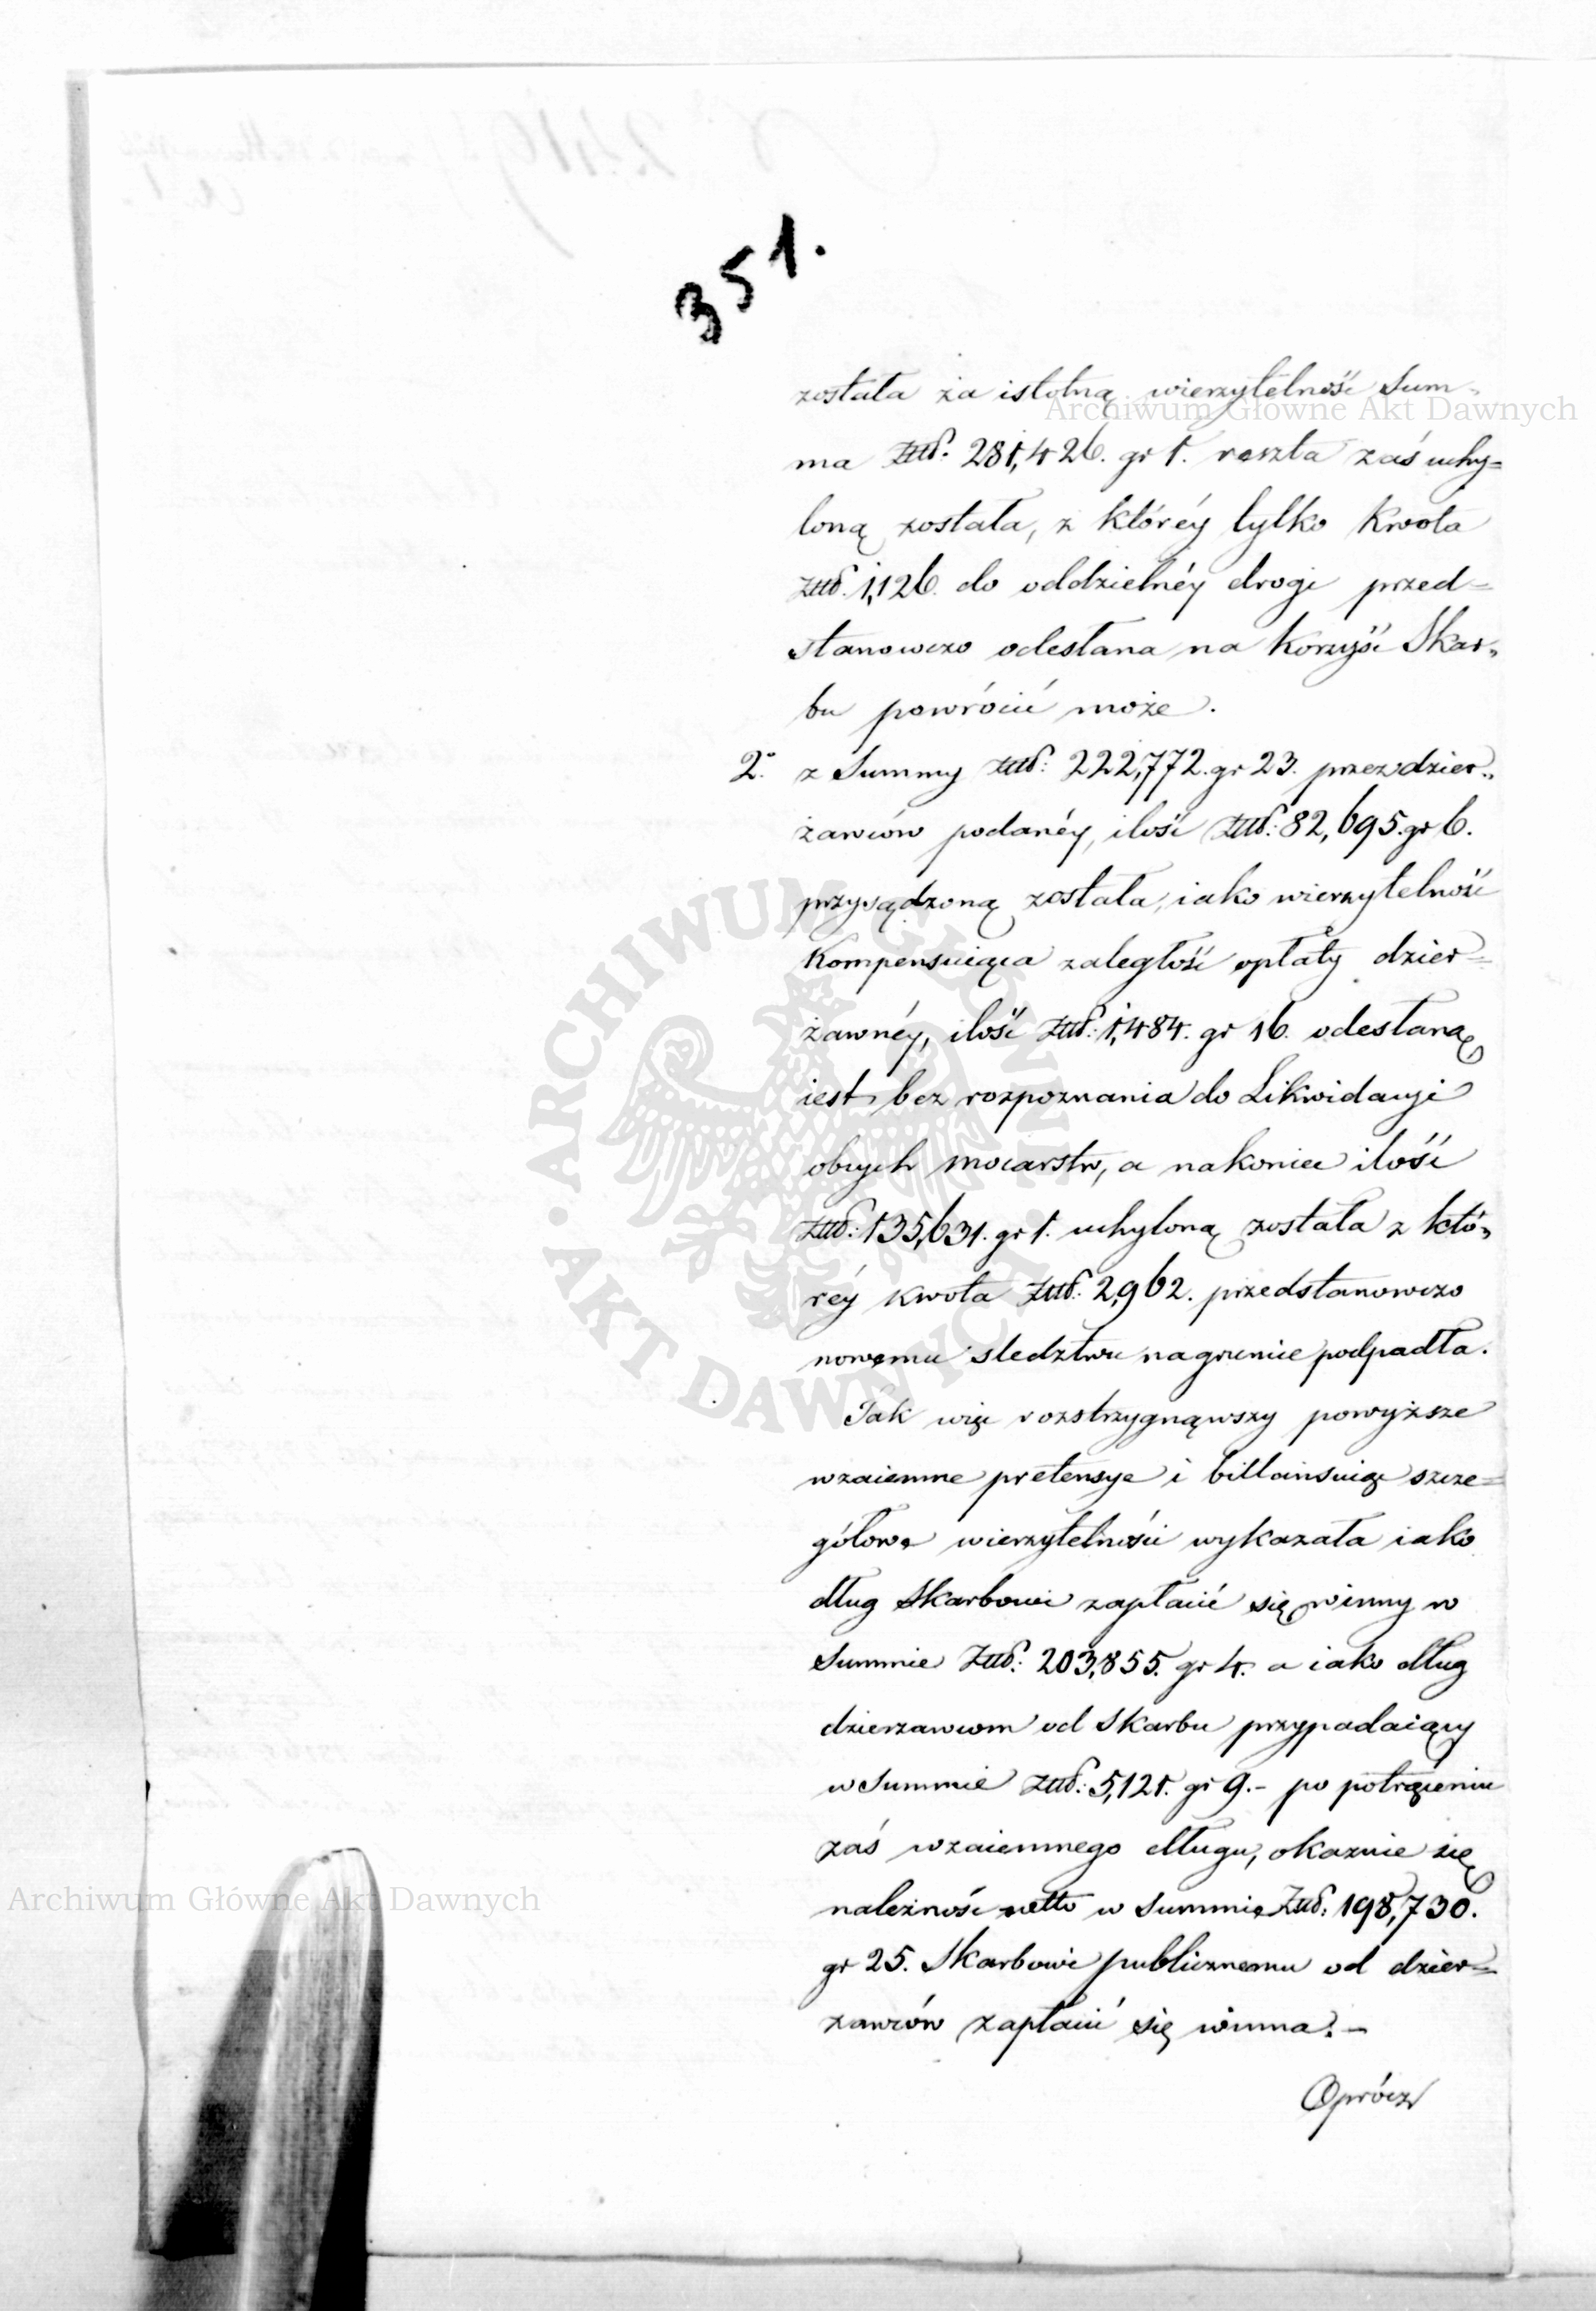 351.
została za istotną wierzytelność Sum-
ma Złd. 281,426. gr 1. reszta zaś uchy=
loną została, z któréy tylko Kwota
Złd. 1,126. do oddzielnéy drogi przed=
stanowczo odesłana na Korzyść Skar-
bu powrócić może.
2º z Summy Złd: 222,772. gr 23. przez dzier-
żawców podanéy, ilość Złd: 82,695. gr 6.
przysądzoną została, iako wierzytelność
Kompensuiąca zaległość opłaty dzier=
żawnéy, ilość Złd: 1,484. gr 16. odesłaną
iest bez rozpoznania do Likwidacyi
obcych mocarstw, a nakoniec ilość
Złd: 135,631. gr 1. uchyloną została z któ-
réy kwota Złd: 2,962. przedstanowczo
nowemu śledztwu na gruncie podpadła.
Tak więc rozstrzygnąwszy powyższe
wzaiemne pretensye i billansuiąc szcze=
gółowe wierzytelności wykazała iako
dług Skarbowi zapłacić się winny w
Summie Złd: 203,855. gr 4. a iako dług
dzierzawcom od Skarbu przypadaiący
w Summie Złd: 5,121. gr 9.- po potrąceniu
zaś wzaiemnego długu, okazuie się
należność netto w Summie Złd: 198,730.
gr 25. Skarbowi publicznemu od dzier=
zawców zapłacić się winna.-
Oprócz
Archiwum Główne Akt Dawnych
ARCHIWUM GŁÓWNE · AKT DAWNYCH ·
Archiwum Główne Akt Dawnych